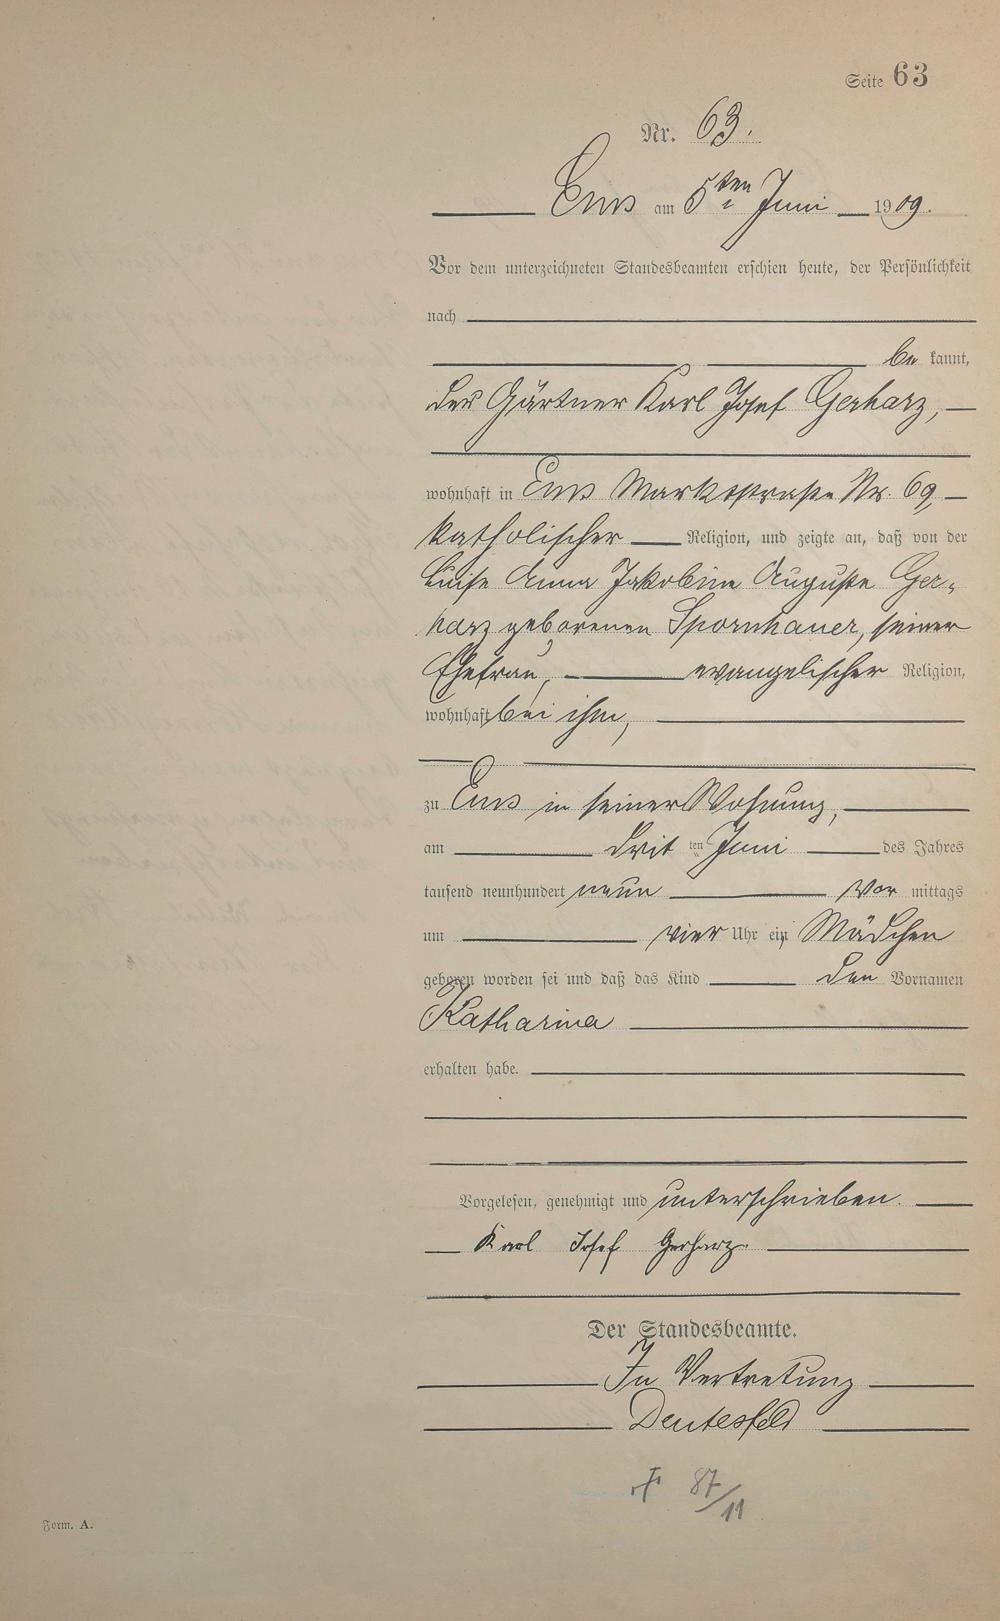 Seite 63
Nr. 63.
Ems am 5ten Juni 1909.
Vor dem unterzeichneten Standesbeamten erschien heute, der Persönlichkeit
nach
be kannt,
der Gärtner Karl Josef Gerharz,
wohnhaft in Ems Marktstraße Nr. 69,
katholischer Religion, und zeigte an, daß von der
Luise Anna Jakobine Auguste Ger-
harz geborenen Spornhauer, seiner
Ehefrau, evangelischer Religion,
wohnhaft bei ihm,
zu Ems in seiner Wohnung,
am drit ten Juni des Jahres
tausend neunhundert neun Vor mittags
um vier Uhr ein Mädchen
geboren worden sei und daß das Kind den Vornamen
Katharina
erhalten habe.
Vorgelesen, genehmigt und unterschrieben.
Karl Josef Gerharz
Der Standesbeamte.
In Vertretung
Deutesfeld
87/11
Form. A.